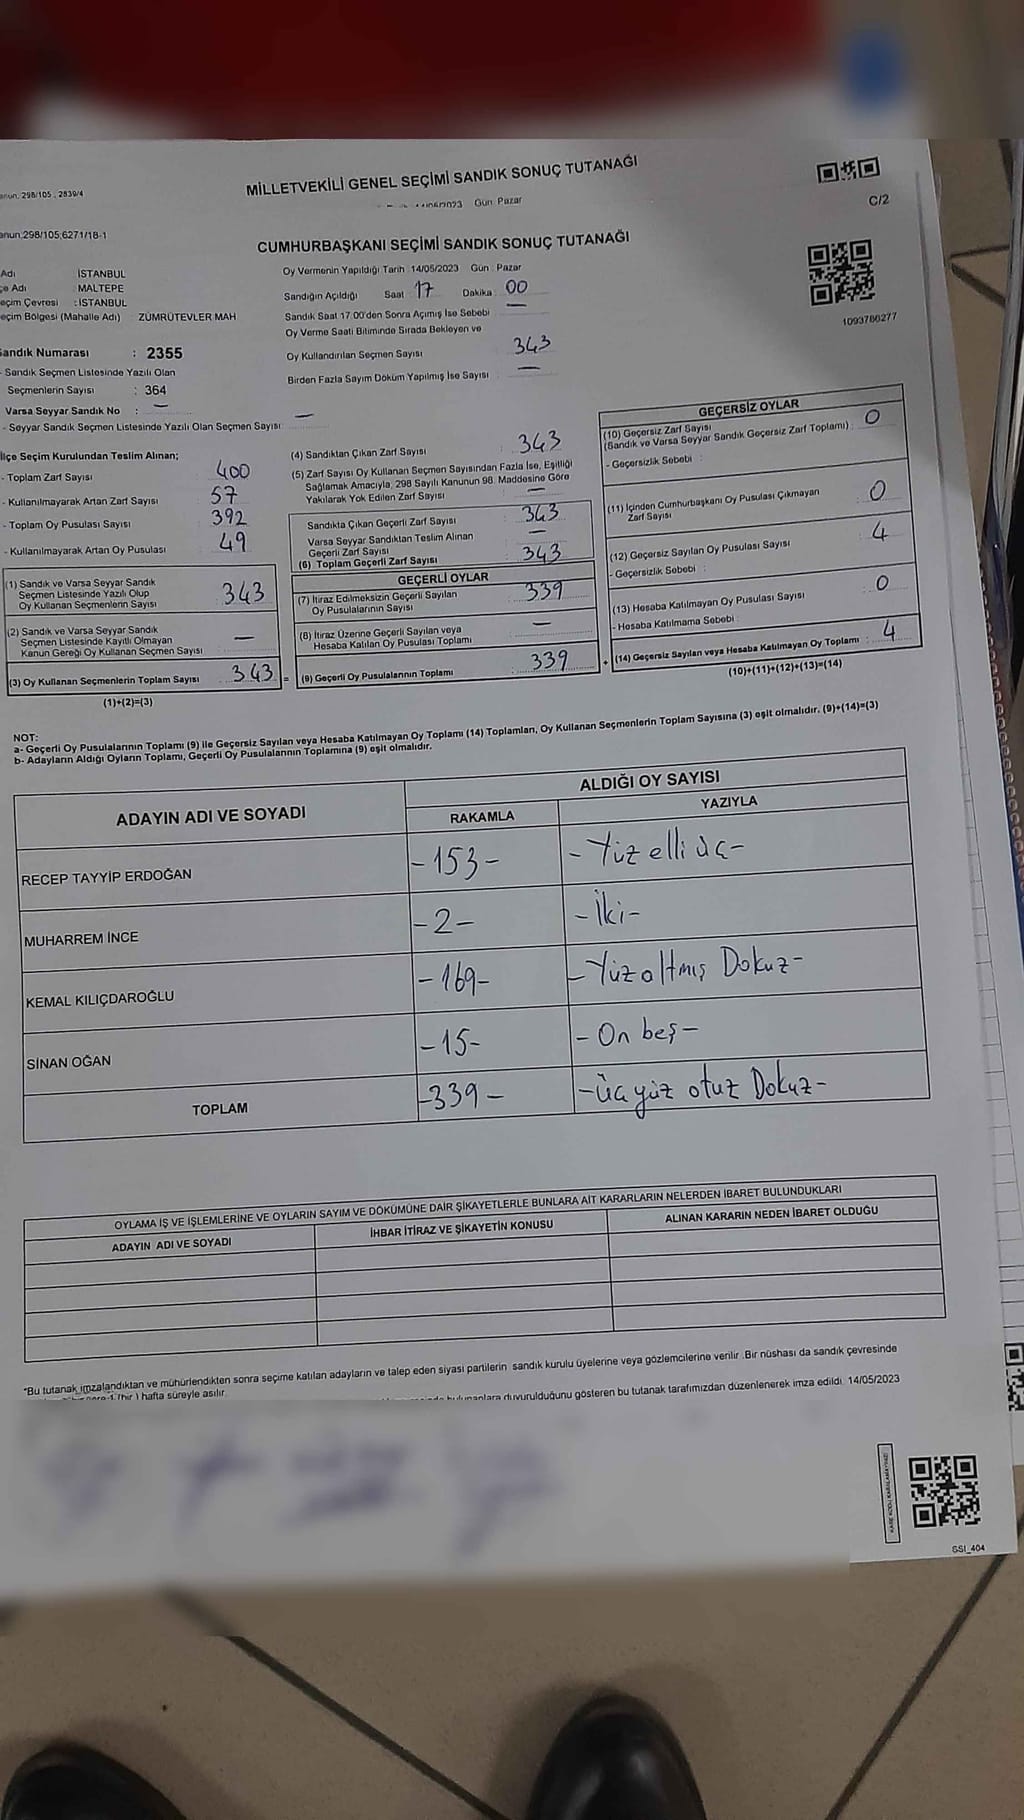 MİLLETVEKİLİ GENEL SEÇİMİ SANDIK SONUÇ TUTANAĞI
298/105 , 2839/4
Gün Pazar
C/2
298/105;6271/18-1
CUMHURBAŞKANI SEÇİMİ SANDIK SONUÇ TUTANAĞI
Adı İSTANBUL
Adı : MALTEPE
Çevresi : İSTANBUL
Bölgesi (Mahalle Adı) ZÜMRÜTEVLER MAH
Sandık Numarası : 2355
- Sandık Seçmen Listesinde Yazılı Olan
Seçmenlerin Sayısı : 364
Varsa Seyyar Sandık No : —
- Seyyar Sandık Seçmen Listesinde Yazılı Olan Seçmen Sayısı —
Oy Vermenin Yapıldığı Tarih 14/05/2023 Gün : Pazar
Sandığın Açıldığı Saat 17 Dakika 00
Sandık Saat 17.00'den Sonra Açımış İse Sebebi —
Oy Verme Saati Bitiminde Sırada Bekleyen ve
Oy Kullandırılan Seçmen Sayısı 343
Birden Fazla Sayım Döküm Yapılmış İse Sayısı : —
1093780277
İlçe Seçim Kurulundan Teslim Alınan;
- Toplam Zarf Sayısı 400
- Kullanılmayarak Artan Zarf Sayısı 57
- Toplam Oy Pusulası Sayısı 392
- Kullanılmayarak Artan Oy Pusulası 49
(1) Sandık ve Varsa Seyyar Sandık
Seçmen Listesinde Yazılı Olup
Oy Kullanan Seçmenlerin Sayısı 343
(2) Sandık ve Varsa Seyyar Sandık
Seçmen Listesinde Kayıtlı Olmayan
Kanun Gereği Oy Kullanan Seçmen Sayısı —
(3) Oy Kullanan Seçmenlerin Toplam Sayısı 343 =
(1)+(2)=(3)
(4) Sandıktan Çıkan Zarf Sayısı 343
(5) Zarf Sayısı Oy Kullanan Seçmen Sayısından Fazla İse, Eşitliği
Sağlamak Amacıyla, 298 Sayılı Kanunun 98. Maddesine Göre
Yakılarak Yok Edilen Zarf Sayısı —
Sandıkta Çıkan Geçerli Zarf Sayısı 343
Varsa Seyyar Sandıktan Teslim Alınan
Geçerli Zarf Sayısı —
(6) Toplam Geçerli Zarf Sayısı 343
GEÇERLİ OYLAR
(7) İtiraz Edilmeksizin Geçerli Sayılan
Oy Pusulalarının Sayısı 339
(8) İtiraz Üzerine Geçerli Sayılan veya
Hesaba Katılan Oy Pusulası Toplamı —
(9) Geçerli Oy Pusulalarının Toplamı 339 +
GEÇERSİZ OYLAR
(10) Geçersiz Zarf Sayısı
(Sandık ve Varsa Seyyar Sandık Geçersiz Zarf Toplamı) 0
- Geçersizlik Sebebi :
(11) İçinden Cumhurbaşkanı Oy Pusulası Çıkmayan
Zarf Sayısı 0
(12) Geçersiz Sayılan Oy Pusulası Sayısı 4
- Geçersizlik Sebebi :
(13) Hesaba Katılmayan Oy Pusulası Sayısı 0
- Hesaba Katılmama Sebebi :
(14) Geçersiz Sayılan veya Hesaba Katılmayan Oy Toplamı 4
(10)+(11)+(12)+(13)=(14)
NOT:
a- Geçerli Oy Pusulalarının Toplamı (9) ile Geçersiz Sayılan veya Hesaba Katılmayan Oy Toplamı (14) Toplamları, Oy Kullanan Seçmenlerin Toplam Sayısına (3) eşit olmalıdır. (9)+(14)=(3)
b- Adayların Aldığı Oyların Toplamı, Geçerli Oy Pusulalarının Toplamına (9) eşit olmalıdır.
ADAYIN ADI VE SOYADI ALDIĞI OY SAYISI
RAKAMLA YAZIYLA
RECEP TAYYİP ERDOĞAN -153- -Yüz elli üç-
MUHARREM İNCE -2- -İki-
KEMAL KILIÇDAROĞLU -169- -Yüz altmış Dokuz-
SİNAN OĞAN -15- -On beş-
TOPLAM -339- -üç yüz otuz Dokuz-
OYLAMA İŞ VE İŞLEMLERİNE VE OYLARIN SAYIM VE DÖKÜMÜNE DAİR ŞİKAYETLERLE BUNLARA AİT KARARLARIN NELERDEN İBARET BULUNDUKLARI
ADAYIN ADI VE SOYADI İHBAR İTİRAZ VE ŞİKAYETİN KONUSU ALINAN KARARIN NEDEN İBARET OLDUĞU
*Bu tutanak imzalandıktan ve mühürlendikten sonra seçime katılan adayların ve talep eden siyasi partilerin sandık kurulu üyelerine veya gözlemcilerine verilir .Bir nüshası da sandık çevresinde
(bir ) hafta süreyle asılır.
bulunanlara duyurulduğunu gösteren bu tutanak tarafımızdan düzenlenerek imza edildi. 14/05/2023
SSI_404